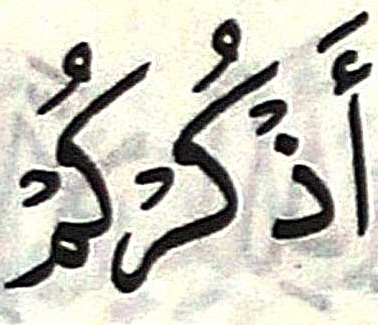 أَذْكُرْكُمْ